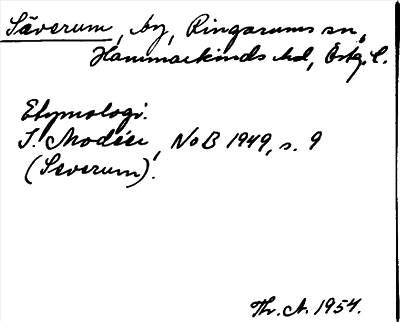 Säverum, by, Ringarums sn,
Hammarkinds hd, Östg. l.
Etymologi.
I. Modéer, NoB 1949, s. 9
(Severum).
Th. A. 1954.